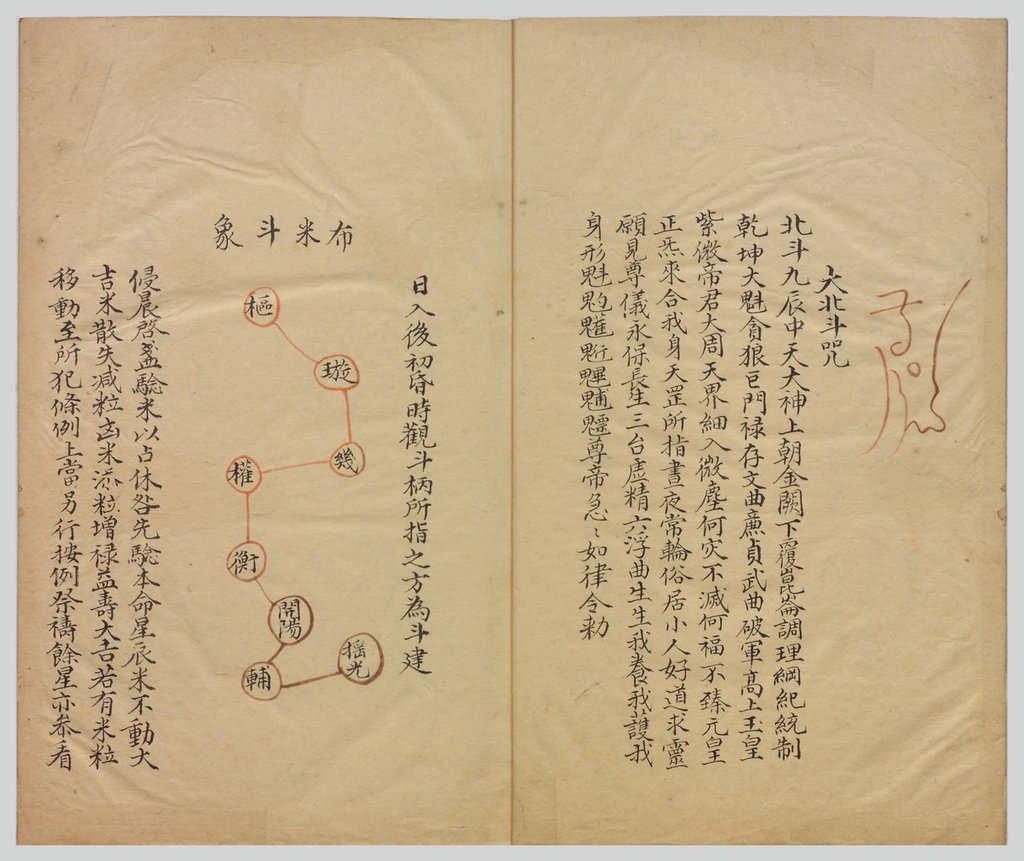 大北斗咒
北斗九辰中天大神上朝金闕下覆崑崙調理綱紀統制
乾坤大魁貪狼巨門禄存文曲廉貞武曲破軍高上玉皇
紫微帝君大周天界細入微塵何灾不滅何福不臻元皇
正炁來合我身天罡所指晝夜常輪俗居小人好道求靈
願見尊儀永保長生三台虚精六浮曲生生我養我護我
身形魁尊帝急〻如律令勑
日入後初昏時觀斗柄所指之方為斗建
布米斗象
樞
璇
幾
權
衡
開陽
輔
揺光
侵晨啓盏驗米以占休咎先驗本命星辰米不動大
吉米散失减粒凶米添粒增禄益壽大吉若有米粒
移動至所犯條例上當另行按例祭禱餘星亦叅看